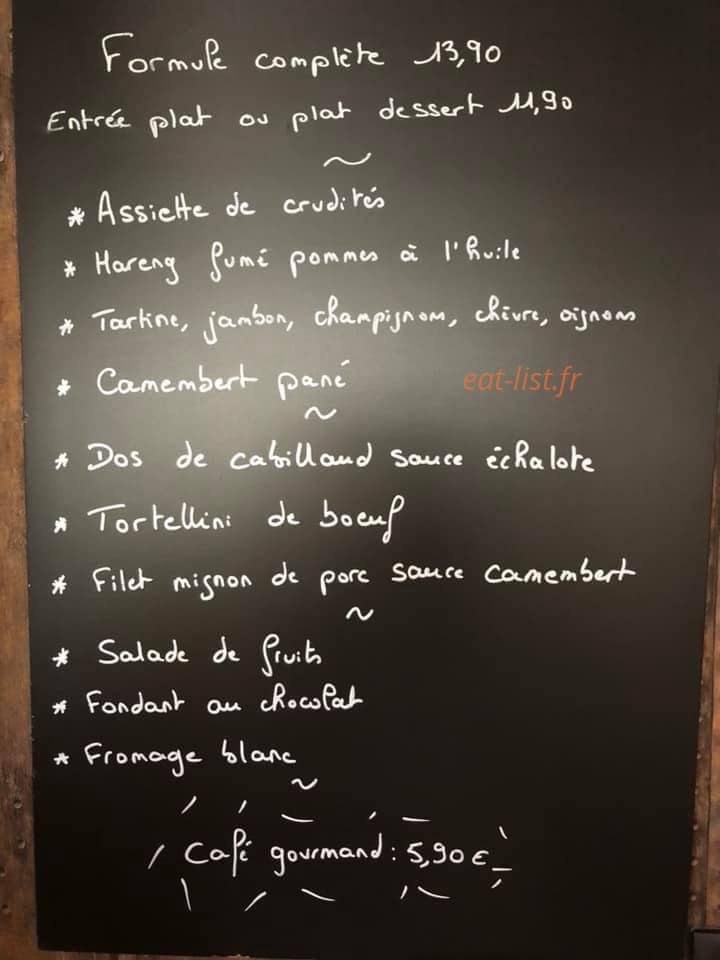 Formule complète 13,90
Entrée plat ou plat dessert 11,90
~
* Assiette de crudités
* Hareng fumé pommes à l'huile
* Tartine, jambon, champignons, chèvre, oignons
* Camembert pané
eat-list.fr
~
* Dos de cabillaud sauce échalote
* Tortellini de boeuf
* Filet mignon de porc sauce camembert
~
* Salade de fruits
* Fondant au chocolat
* Fromage blanc
~
Café gourmand : 5,90 €